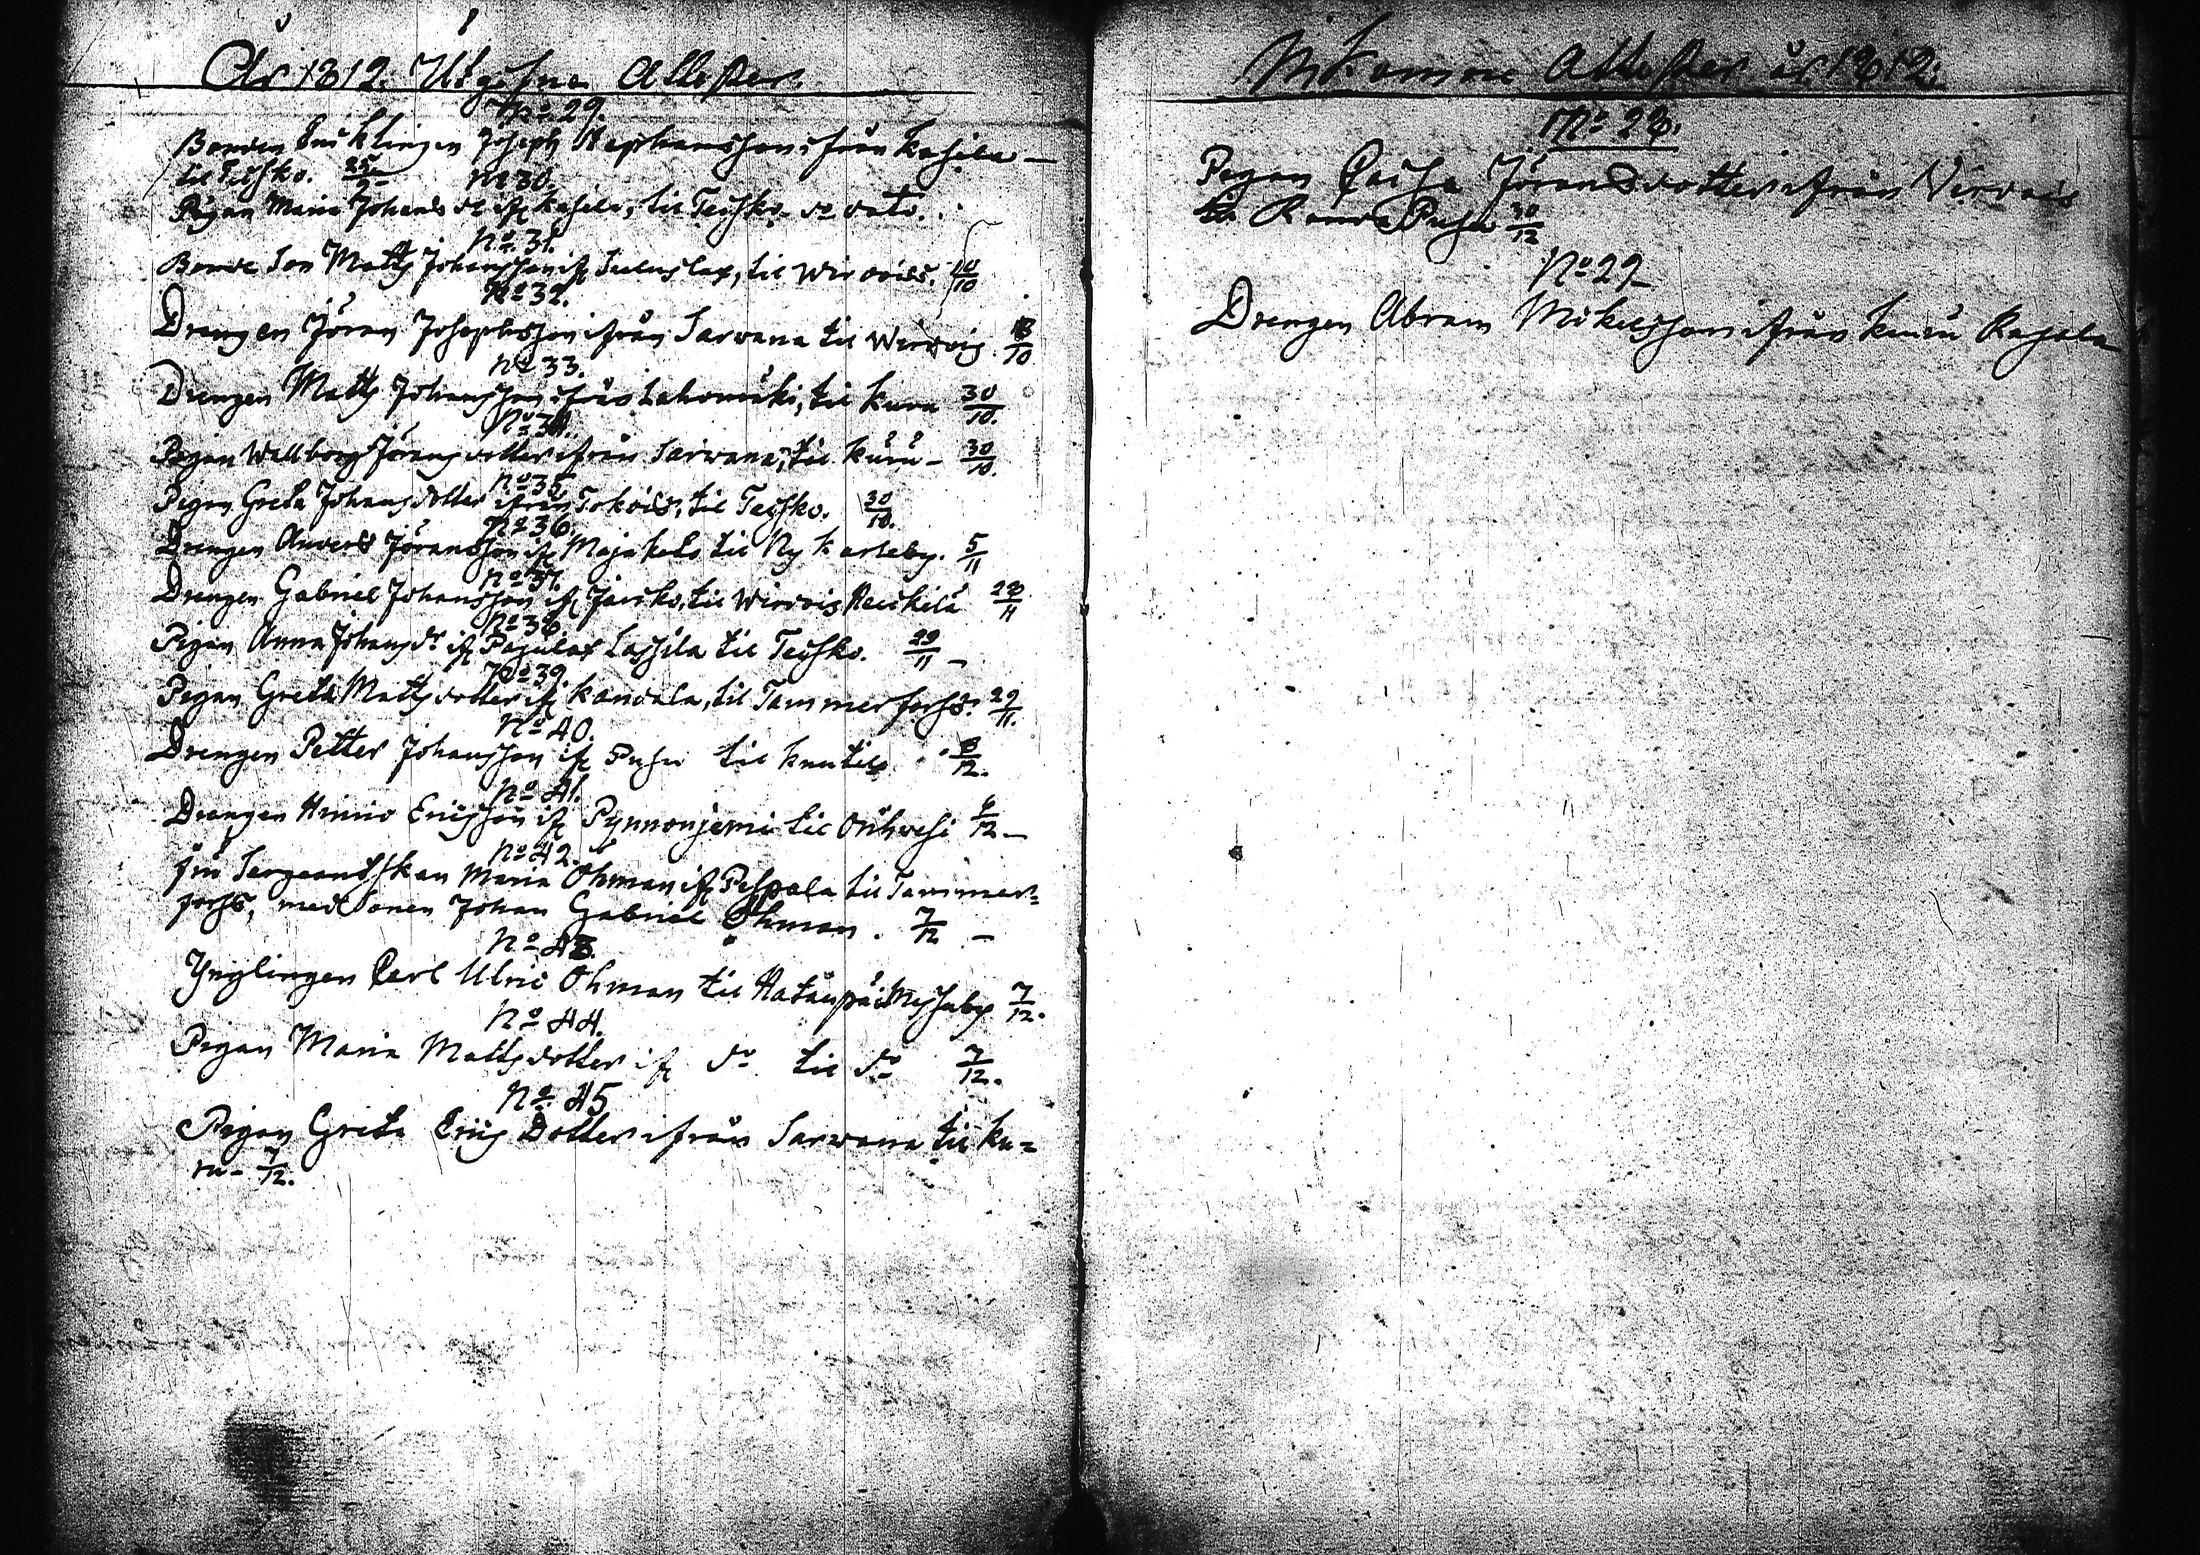 År 1812. Utgifne Attester.
No. 29.
Bonden Enklingen Joseph Stephansson ifrån Kasila
til Teisko. 25
No 30.
Pigan Maria Johans dr ifr Kasila, til Teisko de dato.
No. 31.
Bonde Son Matts Johansson ifr til Wirdois. 10/10
No 32.
Drengen Jöran Josephsson ifrån Sarwana til Wirdois 18/10
No 33.
Drengen Matts Johansson ifrån Lahomäki, til Kuru 30/10.
No 34.
Pigan Wallborg Jöransdotter ifrån Sarwana, til Kuru - 30/10.
No 35
Pigan Greta Johansdotter ifrån til Teisko. 30/10.
No 36.
Drengen Anders Jöransson ifr Majakets til Ny Karleby. 5/11
No 37.
Drengen Gabriel Johansson ifr Jäisko, til Wirdois 28/11
No 38.
Pigan Anna Johansdr ifr Lassila til Teisko. 29/11 -
No 39.
Pigan Greta Mattsdotter ifr Kandala, til Tammerforss. 29/11.
No 40.
Drengen Petter Johansson ifr Puhu til 6/12.
No 41.
Drengen Henric Ericsson ifr Pynnönjemi til Orihwesi 6/12 -
No 42.
Fru Sergeantskan Maria Öhman ifr Pespala til Tammer=
forss, med Sonen Johan Gabriel Öhman. 7/12 -
No 43.
Ynglingen Carl Ulric Öhman til Hatanpää Messuby 7/12.
No 44.
Pigan Maria Mattsdotter ifr do til do 7/12.
No 45
Pigan Greta Erics Dotter ifrån Sarwana til Ku=
ru - 7/12.
Inkomne Attester år 1812.
No 28.
Pigan Caisa Jöransdotter ifrån Virdois
til Puhu 30/12
No 29
Drengen Abram Mikelsson ifrån Kuru